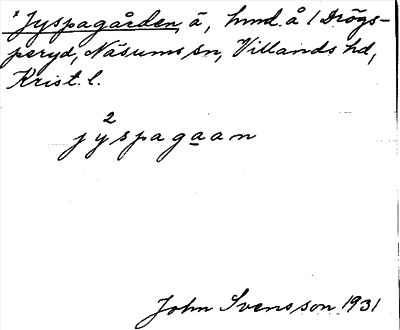 *Jyspagården, ä, hmd. å 1 Drögs-
peryd, Näsums sn, Villands hd,
Krist. l.
2
jyspagaan
John Svensson 1931